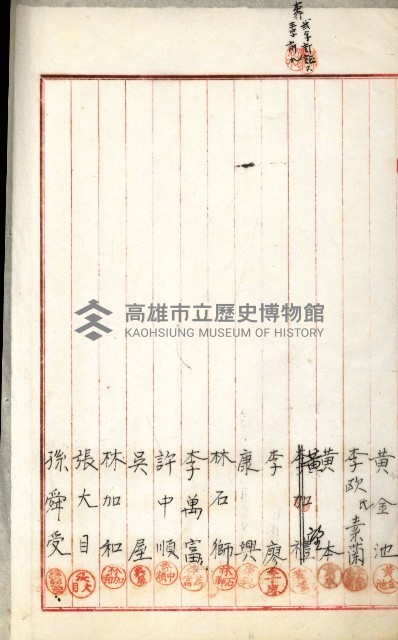 黃金池
李歐氏素蘭
黃本
黃
李加禮
李廖
康興
林石獅
李萬富
許中順
吳屋
林加和
張大目
孫舜受
高雄市立歷史博物館
KAOHSIUNG MUSEUM OF HISTORY